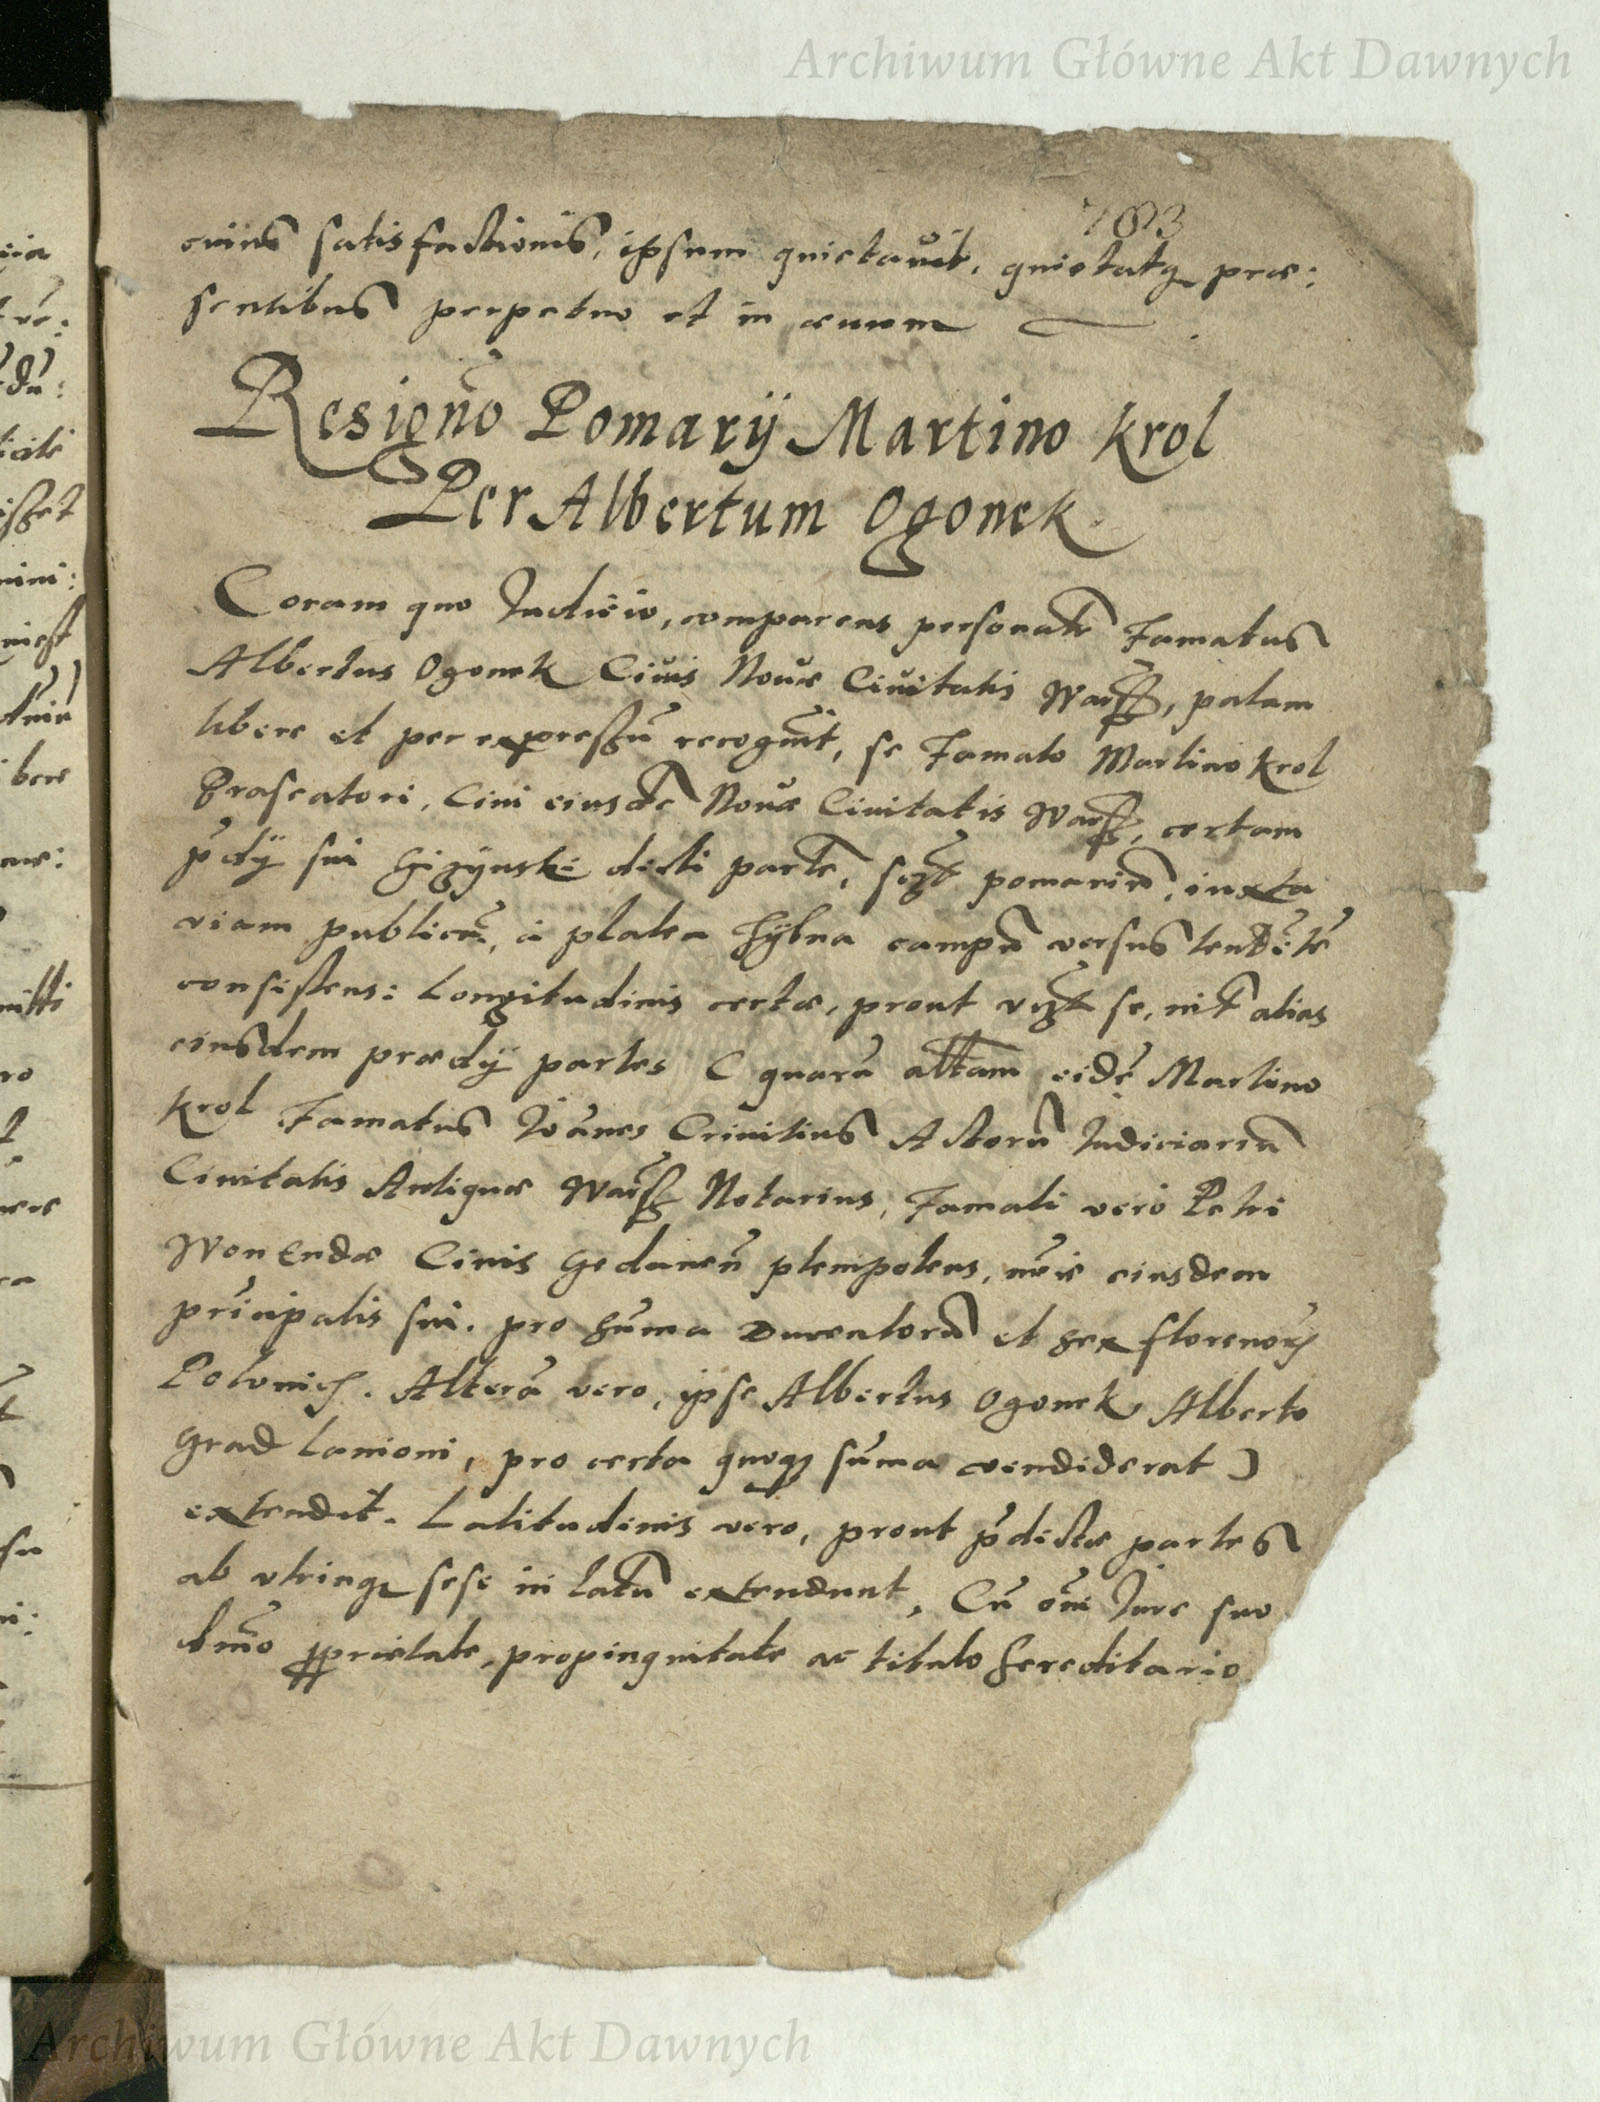 Archiwum Główne Akt Dawnych
703
cuius satisfactionis, ipsum quietauit, quietatq prae:
sentibus perpetuo et in aeuum
Resigno Pomarij Martino Krol
Per Albertum Ogonek.
Coram quo Judicio, comparens personalr Famatus
Albertus Ogonek Ciuis Nouae Ciuitatis Warß, palam
libere et per expressũ recognuit, se Famato Martino Krol
Praseatori, Ciui eiusdẽ Nouae Ciuitatis Warß, certam
p̃dij sui dicti partẽ, pomariũ, iuxta
viam publicã, à platea campũ versus tendẽtẽ
consistens: Longitudinis certae, prout se, alias
eiusdem praedij partes ( quarũ altẽram eidẽ Martino
Krol Famatus Joãnes Crinitius Actorũ Judiciariũ
Ciuitatis Antiquae Warß Notarius, Famati vero Petri
Ciuis Gedanen̄ plenipotens, nõie eiusdem
prĩcipalis sui. pro sũma Ducentorũ et sex florenorũ
Polonic. Alterã vero, ipse Albertus Ogonek Alberto
Grad Lanioni, pro certa quoq sũma vendiderat )
extendit. Latitudinis vero, prout p̃dictae partes
ab vtrinq sese in latũ extendunt, Cũ õni Jure suo
dm̃o pprietate, propinquitate ac titulo hereditario
Archiwum Główne Akt Dawnych